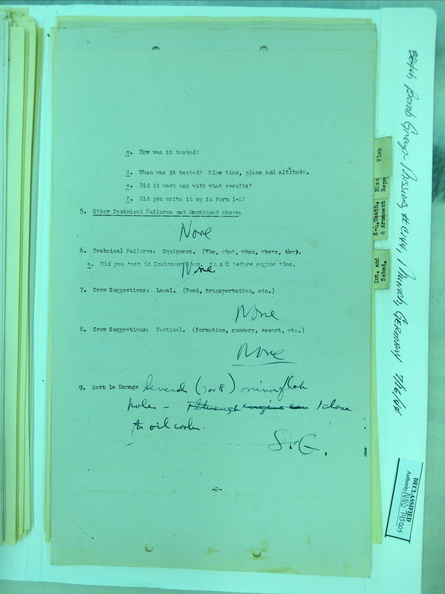 c. How was it tested?
d. When was it tested? Give time, place and altitude.
e. Did it work and with what results?
f. Did you write it up in Form 1-A?
5. Other Technical Failures not Mentioned above:
None
6. Technical Failures: Equipment. (Who, what, when, where, how).
a. Did you test in Equipment Room, in A/C before engine time.
None
7. Crew Suggestions: Local. (Food, transportation, etc.)
None
8. Crew Suggestions: Tactical. (Formation, gunnery, escort, etc.)
None
9. Battle Damage Several (7 or 8) minor flak
holes - 1 close
to oil cooler.
S. G.
-2-
Flak
Misc
Reps
E-J, Weath.
& Armament
Int. and
Sched.
Bomb Group - Mission # 
Munich, Germany 7/16/44
DECLASSIFIED
Authority NND 745005